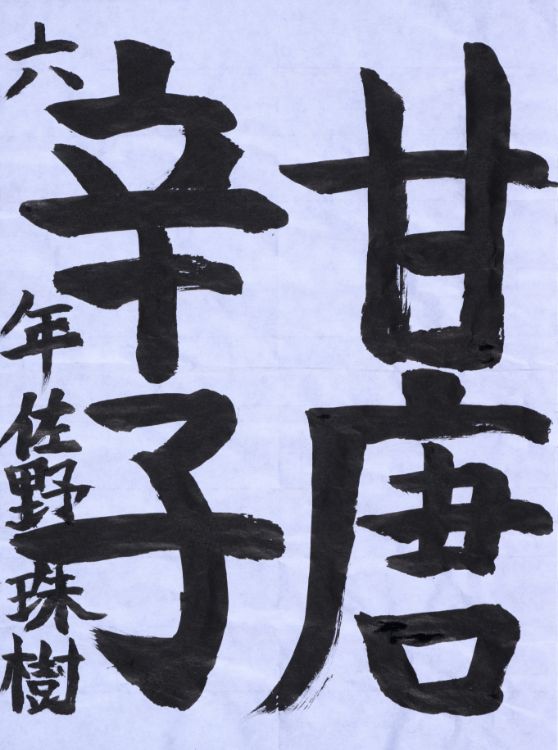 甘唐
辛子
六年佐野珠樹